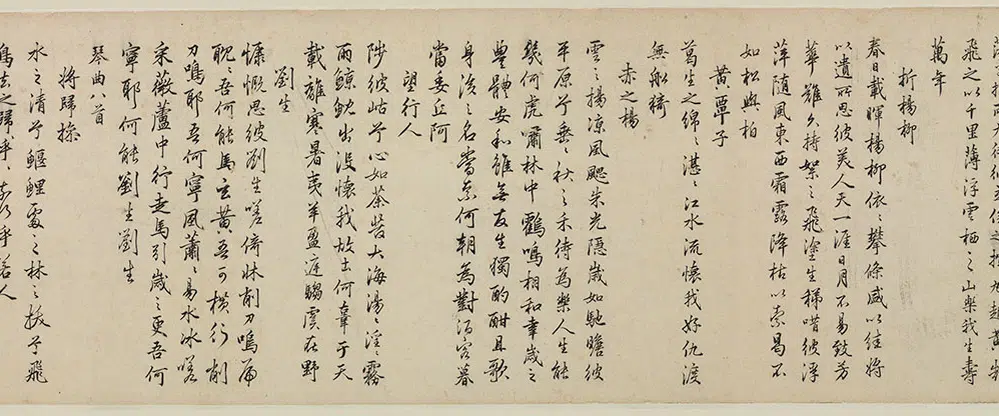 飛之以千里薄浮雲栖之山樂我生壽
萬年
折楊柳
春日載暉楊柳依〻攀條感以結將
以遺所思彼美人天一涯日月不易致芳
華難久持絮之飛塗生稊嗜彼浮
萍隨風東西霜露降枯以索曷不
如松與柏
黃覃子
葛生之綿〻湛〻江水流懷我好仇渡
無船
赤之楊
雲之揚涼風颸朱光隱歲如馳瞻彼
平原兮垂〻秋之禾待為樂人生能
幾何虎嘯林中鶴鳴相和幸歲之
豐體安和雖無友生獨酌酣且歌
身後之名當奈何朝為對酒客暮
當委丘阿
望行人
陟彼岵兮心如荼苦大海湯〻淫〻霧
雨鯨魷出沒懷我故土何辜于天
載離寒暑夷羊盈庭騶虞在野
劉生
慷慨思彼劉生嗟倚牀削刀鳴
耽〻吾何能馬玄黃吾可橫行削
刀鳴耶吾何寧風蕭〻易水冰嗟
采薇蘆中行走馬引歲之更吾何
寧耶何能劉生劉生
琴曲八首
將歸操
水之清兮鰋鯉處之林之掖兮飛